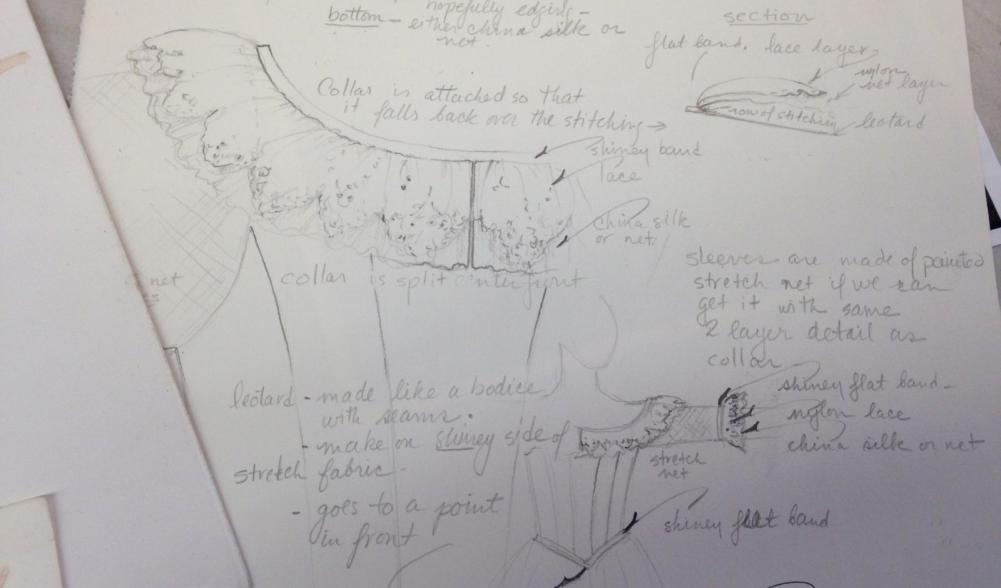 hopefully edging -
bottom - either china silk or
net.
section
flat band. lace layer
nylon
net layer
row of stitching
leotard
Collar is attached so that
it falls back over the stitching →
shiney band
lace
china silk
or net.
net
collar is split center front
sleeves are made of painted
stretch net if we can
get it with same
2 layer detail as
collar
shiney flat band -
nylon lace
china silk or net
stretch
net
leotard - made like a bodice
with seams.
- make on shiney side of
stretch fabric.
- goes to a point
in front
shiney flat band